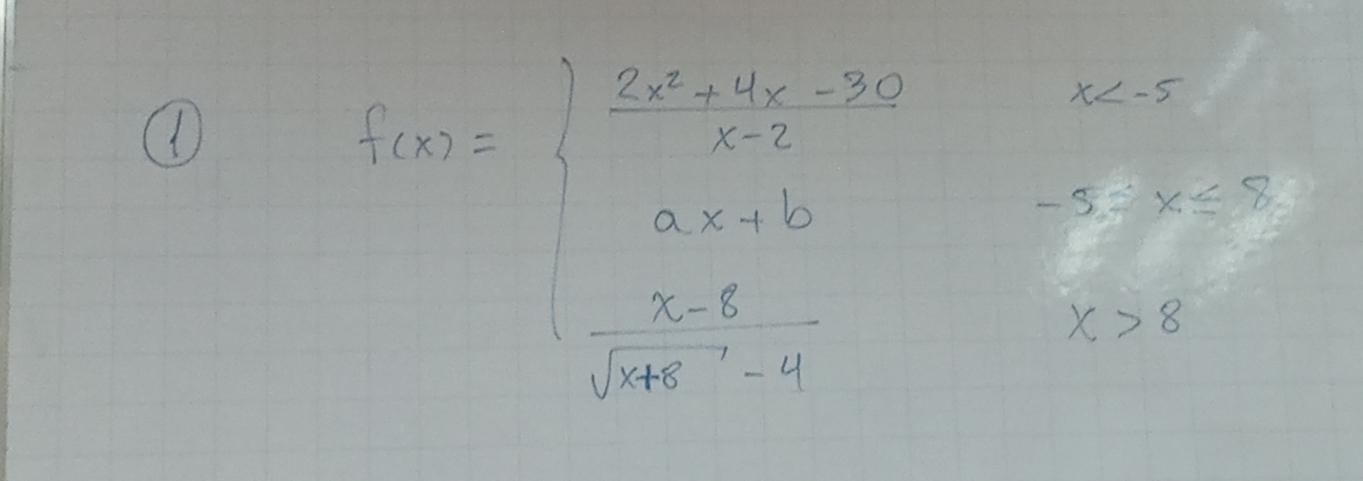 ① f(x) = { (2x² + 4x - 30)/(x - 2)    x < -5
ax + b    -5 ≤ x ≤ 8
(x - 8)/(√(x+8) - 4)    x > 8